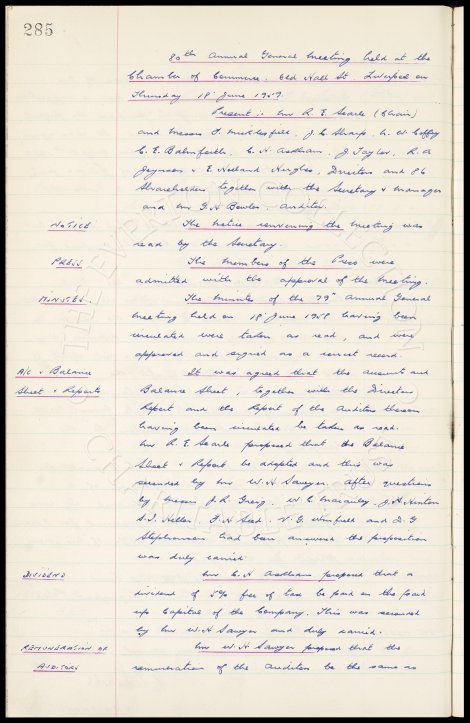 285
80th Annual General Meeting held at the
Chamber of Commerce, Old Hall St. Liverpool on
Thursday 18 June 1959.
Present:- Mr R. E. Searle (Chair)
and Messrs F. Micklesfield, J. C. Sharp, W. W. Coffey
C. E. Balmforth, C. H. Askham, J. Taylor, R. A.
& E. Holland Hughes, Directors and 86
Shareholders together with the Secretary & Manager
and Mr G. H. Bowler. Auditor.
NOTICE
The notice convening the meeting was
read by the Secretary.
PRESS
The members of the Press were
admitted with the approval of the meeting.
MINUTES
The Minutes of the 79th Annual General
Meeting held on 18 June 1958 having been
circulated were taken as read, and were
approved and signed as a correct record.
A/c & Balance
Sheet & Reports
It was agreed that the account and
Balance Sheet, together with the Directors
Report and the Report of the Auditors thereon
having been circulated be taken as read.
Mr R. E. Searle proposed that the Balance
Sheet & Report be adopted and this was
seconded by Mr W. H. Sawyer. After questions
by Messrs J. R. Greig, W. C. Macauley, J. H. Hinton
S. I. Heller, F. H. V. G. Winfield and D. G
Stephenson had been answered the proposition
was duly carried.
DIVIDEND
Mr C. H. Askham proposed that a
dividend of 5% free of tax be paid on the paid
up Capital of the Company. This was seconded
by Mr W. H. Sawyer and duly carried.
REMUNERATION OF
AUDITORS
Mr W. H. Sawyer proposed that the
remuneration of the Auditors be the same as
THE EVERTON COLLECTION